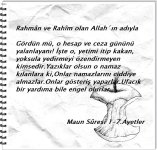 Rahmân ve Rahîm olan Allah´ın adıyla
Gördün mü, o hesap ve ceza gününü
yalanlayanı! İşte o, yetimi itip kakan,
yoksula yedirmeyi özendirmeyen
kimsedir.Yazıklar olsun o namaz
kılanlara ki,Onlar namazlarını ciddiye
almazlar.Onlar gösteriş yaparlar.Ufacık
bir yardıma bile engel olurlar.
Maun Sûresi 1-7.Ayetler